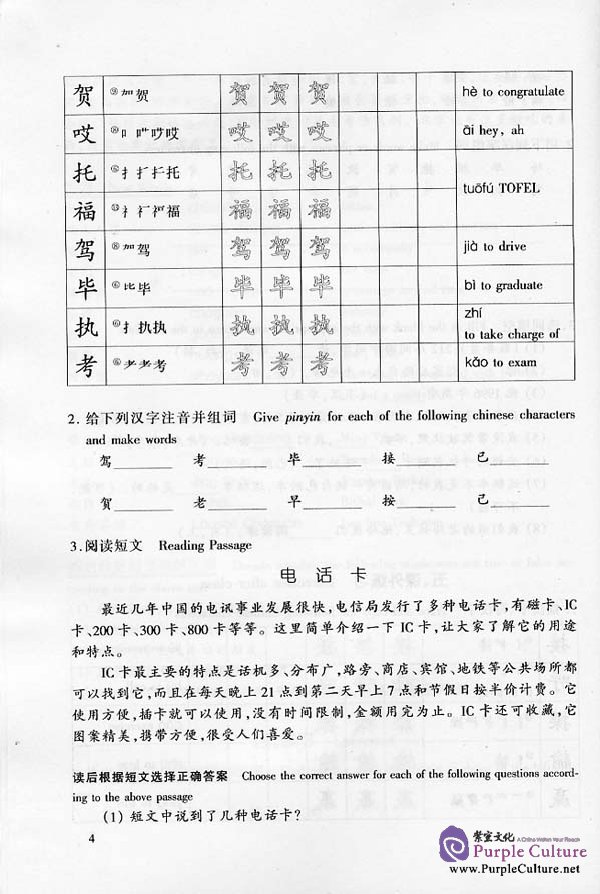 贺 ⑨加贺 贺 贺 贺 hè to congratulate
哎 口 口艹 哎哎 哎 哎 哎 āi hey, ah
托 扌扌托托 托 托 托 tuōfú TOFEL
福 礻礻福福 福 福 福
驾 ⑧加驾 驾 驾 驾 jià to drive
毕 ⑥比毕 毕 毕 毕 bì to graduate
执 扌执执 执 执 执 zhí to take charge of
考 ⑥耂考考 考 考 考 kǎo to exam
2. 给下列汉字注音并组词 Give pinyin for each of the following chinese characters
and make words
驾 考 毕 接 已
贺 老 早 按 己
3. 阅读短文 Reading Passage
电 话 卡
最近几年中国的电讯事业发展很快,电信局发行了多种电话卡,有磁卡、IC
卡、200 卡、300 卡、800 卡等等。这里简单介绍一下 IC 卡,让大家了解它的用途
和特点。
IC 卡最主要的特点是话机多、分布广,路旁、商店、宾馆、地铁等公共场所都
可以找到它,而且在每天晚上 21 点到第二天早上 7 点和节假日按半价计费。它
使用方便,插卡就可以使用,没有时间限制,金额用完为止。IC 卡还可收藏,它
图案精美,携带方便,很受人们喜爱。
读后根据短文选择正确答案 Choose the correct answer for each of the following questions accord-
ing to the above passage
(1) 短文中说到了几种电话卡?
4
紫宸文化 A China Within Your Reach
Purple Culture
www.PurpleCulture.net